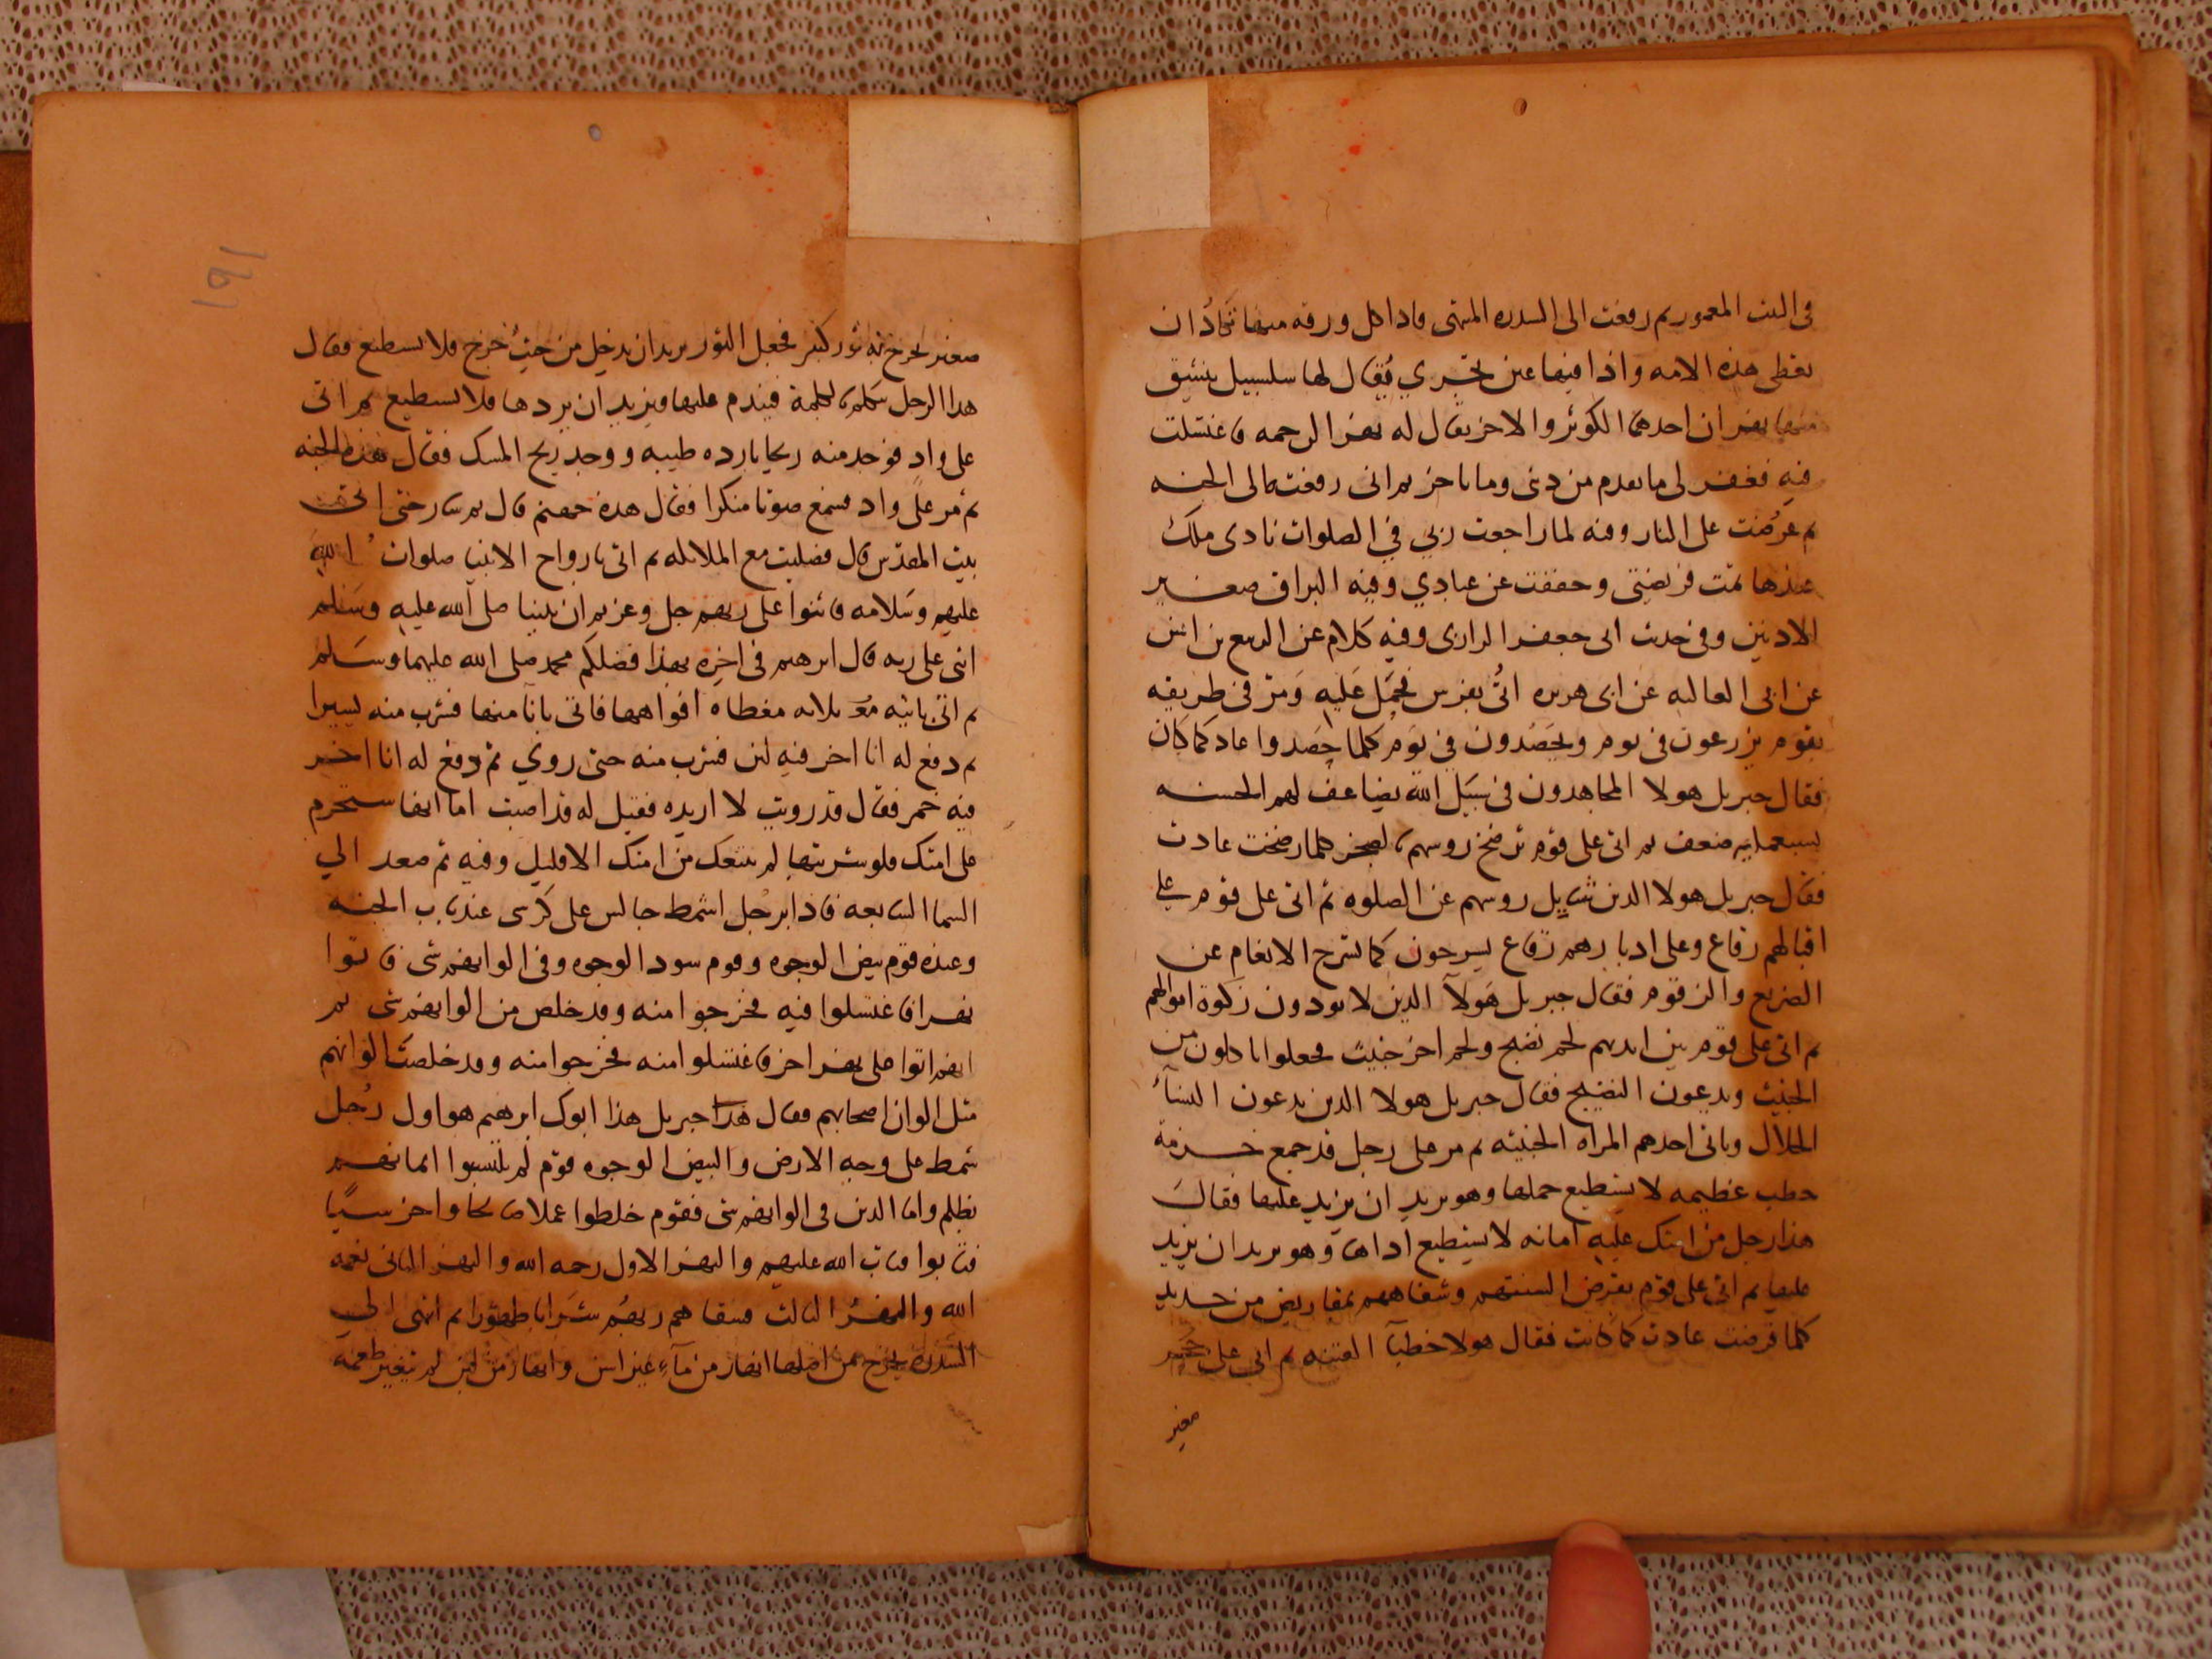 في البيت المعمور ثم رفعت الى السدره المنتهى فاذا كل ورقه منها تكاد ان
تغطي هذه الامه واذا فيها عين تجري يقال لها سلسبيل ينشق
منها نهران احدهما الكوثر والاخر يقال له نهر الرحمه فاغتسلت
فيه فغفر لي ما تقدم من ذنبي وما تاخر ثم اني رفعت الى الجنه
ثم عرضت على النار وفيه لما راجعت ربي في الصلوات نادى ملك
عندها تمت فريضتي وخففت عن عبادي وفيه البراق صغير
الاذنين وفي حديث ابي جعفر الرازي وفيه كلام عن الربيع بن انس
عن ابي العاليه عن ابي هريره اتي بفرس فحمل عليه ومر في طريقه
بقوم يزرعون في يوم ويحصدون في يوم كلما حصدوا عاد كما كان
فقال جبريل هولا المجاهدون في سبيل الله يضاعف لهم الحسنه
بسبعمايه ضعف ثم اتى على قوم ترضخ روسهم بالصخر كلما رضخت عادت
فقال جبريل هولا الذين تثاقل روسهم عن الصلوه ثم اتى على قوم على
اقبالهم رقاع وعلى ادبارهم رقاع يسرحون كما تسرح الانعام عن
الضريع والزقوم فقال جبريل هولآ الذين لا يودون زكوة اموالهم
ثم اتى على قوم بين ايديهم لحم نضيج ولحم اخر خبيث فجعلوا ياكلون من
الخبيث ويدعون النضيج فقال جبريل هولا الذين يدعون النسآء
الحلال وياتي احدهم المراه الخبيثه ثم مر على رجل قد جمع حزمة
حطب عظيمه لا يستطيع حملها وهو يريد ان يزيد عليها فقال
هذا رجل من امتك عليه امانه لا يستطيع اداها وهو يريد ان يزيد
عليها ثم اتى على قوم يقرض السنتهم وشفاههم بمقاريض من حديد
كلما قرضت عادت كما كانت فقال هولا خطبآ الفتنه ثم اتى على حجر
صغير
١٩١
صغير يخرج منه ثور كبير فجعل الثور يريد ان يدخل من حيث خرج فلا يستطيع فقال
هذا الرجل يتكلم بالكلمة فيندم عليها فيريد ان يردها فلا يستطيع ثم اتى
على واد فوجد منه ريحا بارده طيبه ووجد ريح المسك فقال هذه الجنه
ثم مر على واد فسمع صوتا منكرا فقال هذه جهنم قال ثم سار حتى اتى
بيت المقدس قال فصليت مع الملائكه ثم اتى بارواح الانبيا صلوات الله
عليهم وسلامه فاثنوا على ربهم جل وعز ثم ان نبينا صلى الله عليه وسلم
اثنى على ربه قال ابرهيم في اخره بهذا فضلكم محمد صلى الله عليهما وسلم
ثم اتى بانيه ثلاثه مغطاه افواهها فاتى بانآ منها فشرب منه يسيرا
ثم دفع له انا اخر فيه لبن فشرب منه حتى روي ثم دفع له انا اخر
فيه خمر فقال قد رويت لا اريده فقيل له قد اصبت اما انها ستحرم
على امتك فلو شربتها لم يتبعك من امتك الا قليل وفيه ثم صعد الي
السما السابعه فاذا برجل اشمط جالس على كرسي عند باب الجنه
وعنده قوم بيض الوجوه وقوم سود الوجوه وفي الوانهم شي فاتوا
نهرا فاغتسلوا فيه فخرجوا منه وقد خلص من الوانهم شي ثم
انهم اتوا على نهر اخر فاغتسلوا منه فخرجوا منه وقد خلصت الوانهم
مثل الوان اصحابهم فقال هذا جبريل هذا ابوك ابرهيم هو اول رجل
شمط على وجه الارض والبيض الوجوه قوم لم يلبسوا ايمانهم
بظلم واما الذين في الوانهم شي فقوم خلطوا عملا صالحا واخر سيا
فتابوا فتاب الله عليهم والنهر الاول رحمه الله والنهر الثاني نعمه
الله والنهر الثالث فسقاهم ربهم شرابا طهورا ثم انتهى الى
السدره يخرج من اصلها انهار من مآء غير اسن وانهار من لبن لم يتغير طعمه